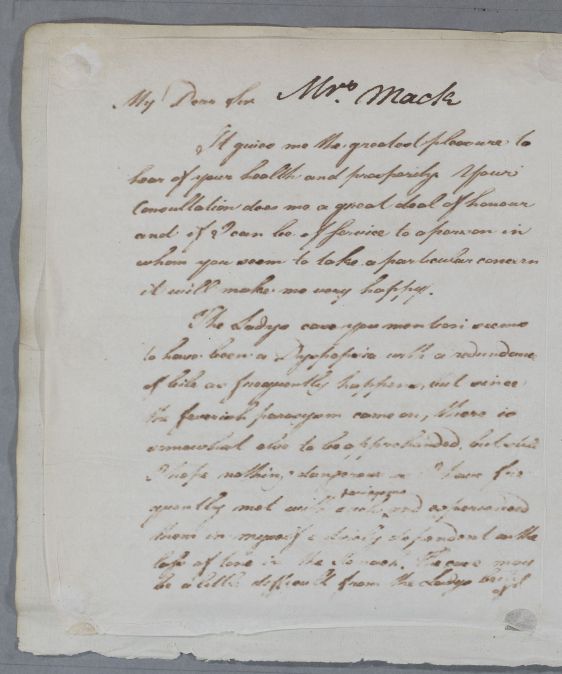 My Dear Sir Mrs. Mack
It gives me the greatest pleasure to
hear of your health and prosperity. Your
Consultation does me a great deal of honour
and if I can be of Service to a person in
whom you seem to take a particular concern
it will make me very happy.
The Ladys case you mention seems
to have been a Dyspepsia with a redundance
of bile as frequently happens, but since
the feverish paroxysm came on, there is
somewhat also to be apprehended, but still
I hope nothing dangerous as I have fre
quently met with such and experienced
them in myself dependent on the
loss of tone in the Stomach. The case may
be a little difficult from the Ladys being